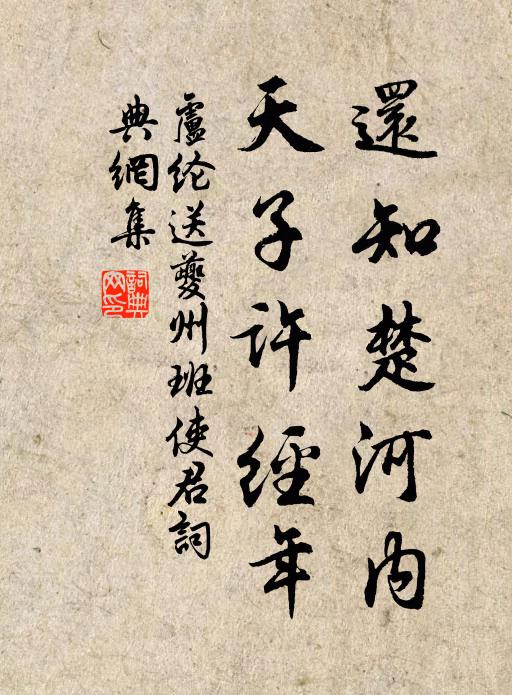 還知楚河内
天子許經年
盧纶送夔州班使君詞
典網集
詞典网印